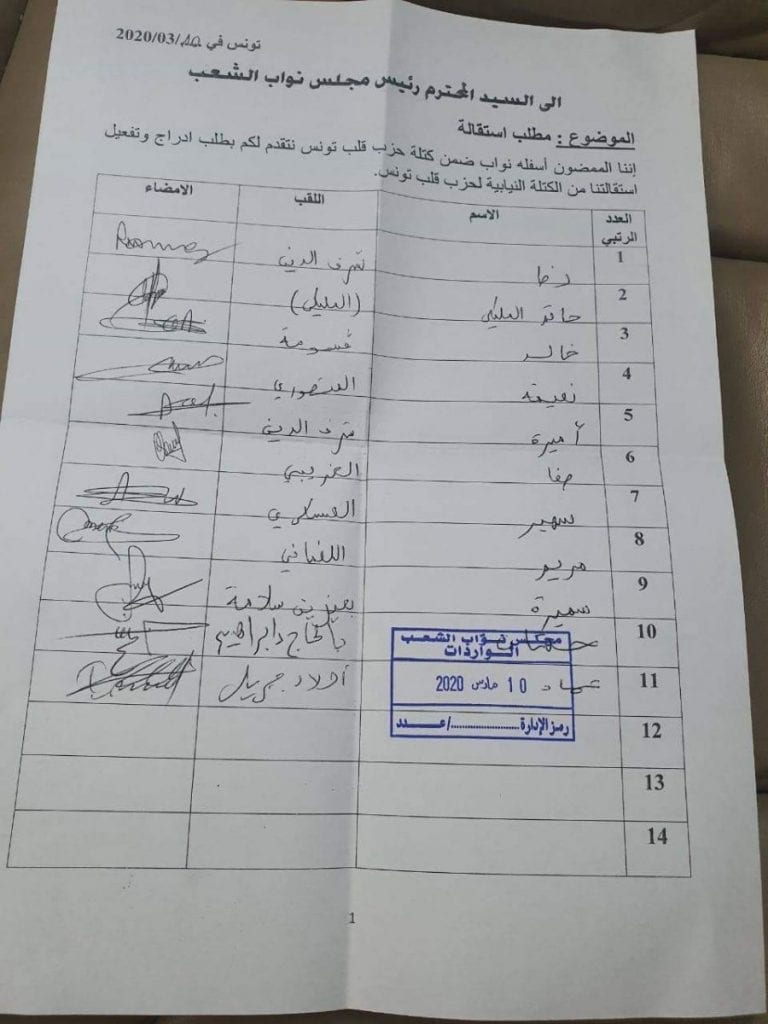 تونس في 10/03/2020
الى السيد المحترم رئيس مجلس نواب الشعب
الموضوع : مطلب استقالة
إننا الممضون أسفله نواب ضمن كتلة حزب قلب تونس نتقدم لكم بطلب ادراج وتفعيل
استقالتنا من الكتلة النيابية لحزب قلب تونس.
العدد الرتبي الاسم اللقب الامضاء
1 رضا شرف الدين
2 حاتم المليكي (المليكي)
3 خالد قسومة
4 نعيمة المنصوري
5 أميرة شرف الدين
6 صفا الغريبي
7 سهير العسكري
8 مريم اللغماني
9 سميرة بعيزيق سلامة
10 بالحاج دابراهيم
11 عماد أولاد جبريل
12
13
14
مجلس نواب الشعب
الواردات
10 مارس 2020
رمز الإدارة ............/عـــدد
1